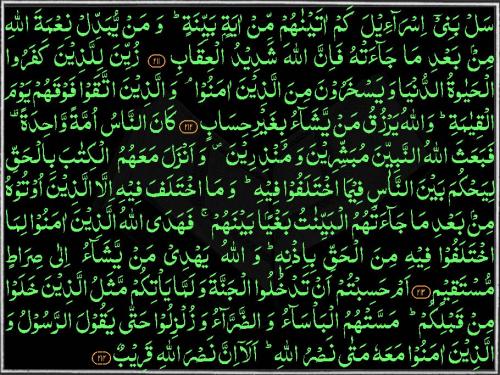 سَلْ بَنِیْۤ اِسْرَآءِیْلَ كَمْ اٰتَیْنٰهُمْ مِّنْ اٰیَةٍۭ بَیِّنَةٍ ؕ وَ مَنْ یُّبَدِّلْ نِعْمَةَ اللّٰهِ
مِنْۢ بَعْدِ مَا جَآءَتْهُ فَاِنَّ اللّٰهَ شَدِیْدُ الْعِقَابِ ﴿۲۱۱﴾ زُیِّنَ لِلَّذِیْنَ كَفَرُوا
الْحَیٰوةُ الدُّنْیَا وَ یَسْخَرُوْنَ مِنَ الَّذِیْنَ اٰمَنُوْا ۘ وَ الَّذِیْنَ اتَّقَوْا فَوْقَهُمْ یَوْمَ
الْقِیٰمَةِ ؕ وَ اللّٰهُ یَرْزُقُ مَنْ یَّشَآءُ بِغَیْرِ حِسَابٍ ﴿۲۱۲﴾ كَانَ النَّاسُ اُمَّةً وَّاحِدَةً ۫
فَبَعَثَ اللّٰهُ النَّبِیّٖنَ مُبَشِّرِیْنَ وَ مُنْذِرِیْنَ ۪ وَ اَنْزَلَ مَعَهُمُ الْكِتٰبَ بِالْحَقِّ
لِیَحْكُمَ بَیْنَ النَّاسِ فِیْمَا اخْتَلَفُوْا فِیْهِ ؕ وَ مَا اخْتَلَفَ فِیْهِ اِلَّا الَّذِیْنَ اُوْتُوْهُ
مِنْۢ بَعْدِ مَا جَآءَتْهُمُ الْبَیِّنٰتُ بَغْیًۢا بَیْنَهُمْ ۚ فَهَدَی اللّٰهُ الَّذِیْنَ اٰمَنُوْا لِمَا
اخْتَلَفُوْا فِیْهِ مِنَ الْحَقِّ بِاِذْنِهٖ ؕ وَ اللّٰهُ یَهْدِیْ مَنْ یَّشَآءُ اِلٰی صِرَاطٍ
مُّسْتَقِیْمٍ ﴿۲۱۳﴾ اَمْ حَسِبْتُمْ اَنْ تَدْخُلُوا الْجَنَّةَ وَ لَمَّا یَاْتِكُمْ مَّثَلُ الَّذِیْنَ خَلَوْا
مِنْ قَبْلِكُمْ ؕ مَسَّتْهُمُ الْبَاْسَآءُ وَ الضَّرَّآءُ وَ زُلْزِلُوْا حَتّٰی یَقُوْلَ الرَّسُوْلُ وَ
الَّذِیْنَ اٰمَنُوْا مَعَهٗ مَتٰی نَصْرُ اللّٰهِ ؕ اَلَاۤ اِنَّ نَصْرَ اللّٰهِ قَرِیْبٌ ﴿۲۱۴﴾